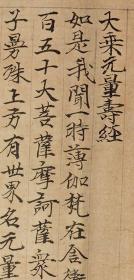 大乘无量壽經
如是我聞一時薄伽梵在舍衛
百五十大菩薩摩訶薩衆
子曼殊上方有世界名无量